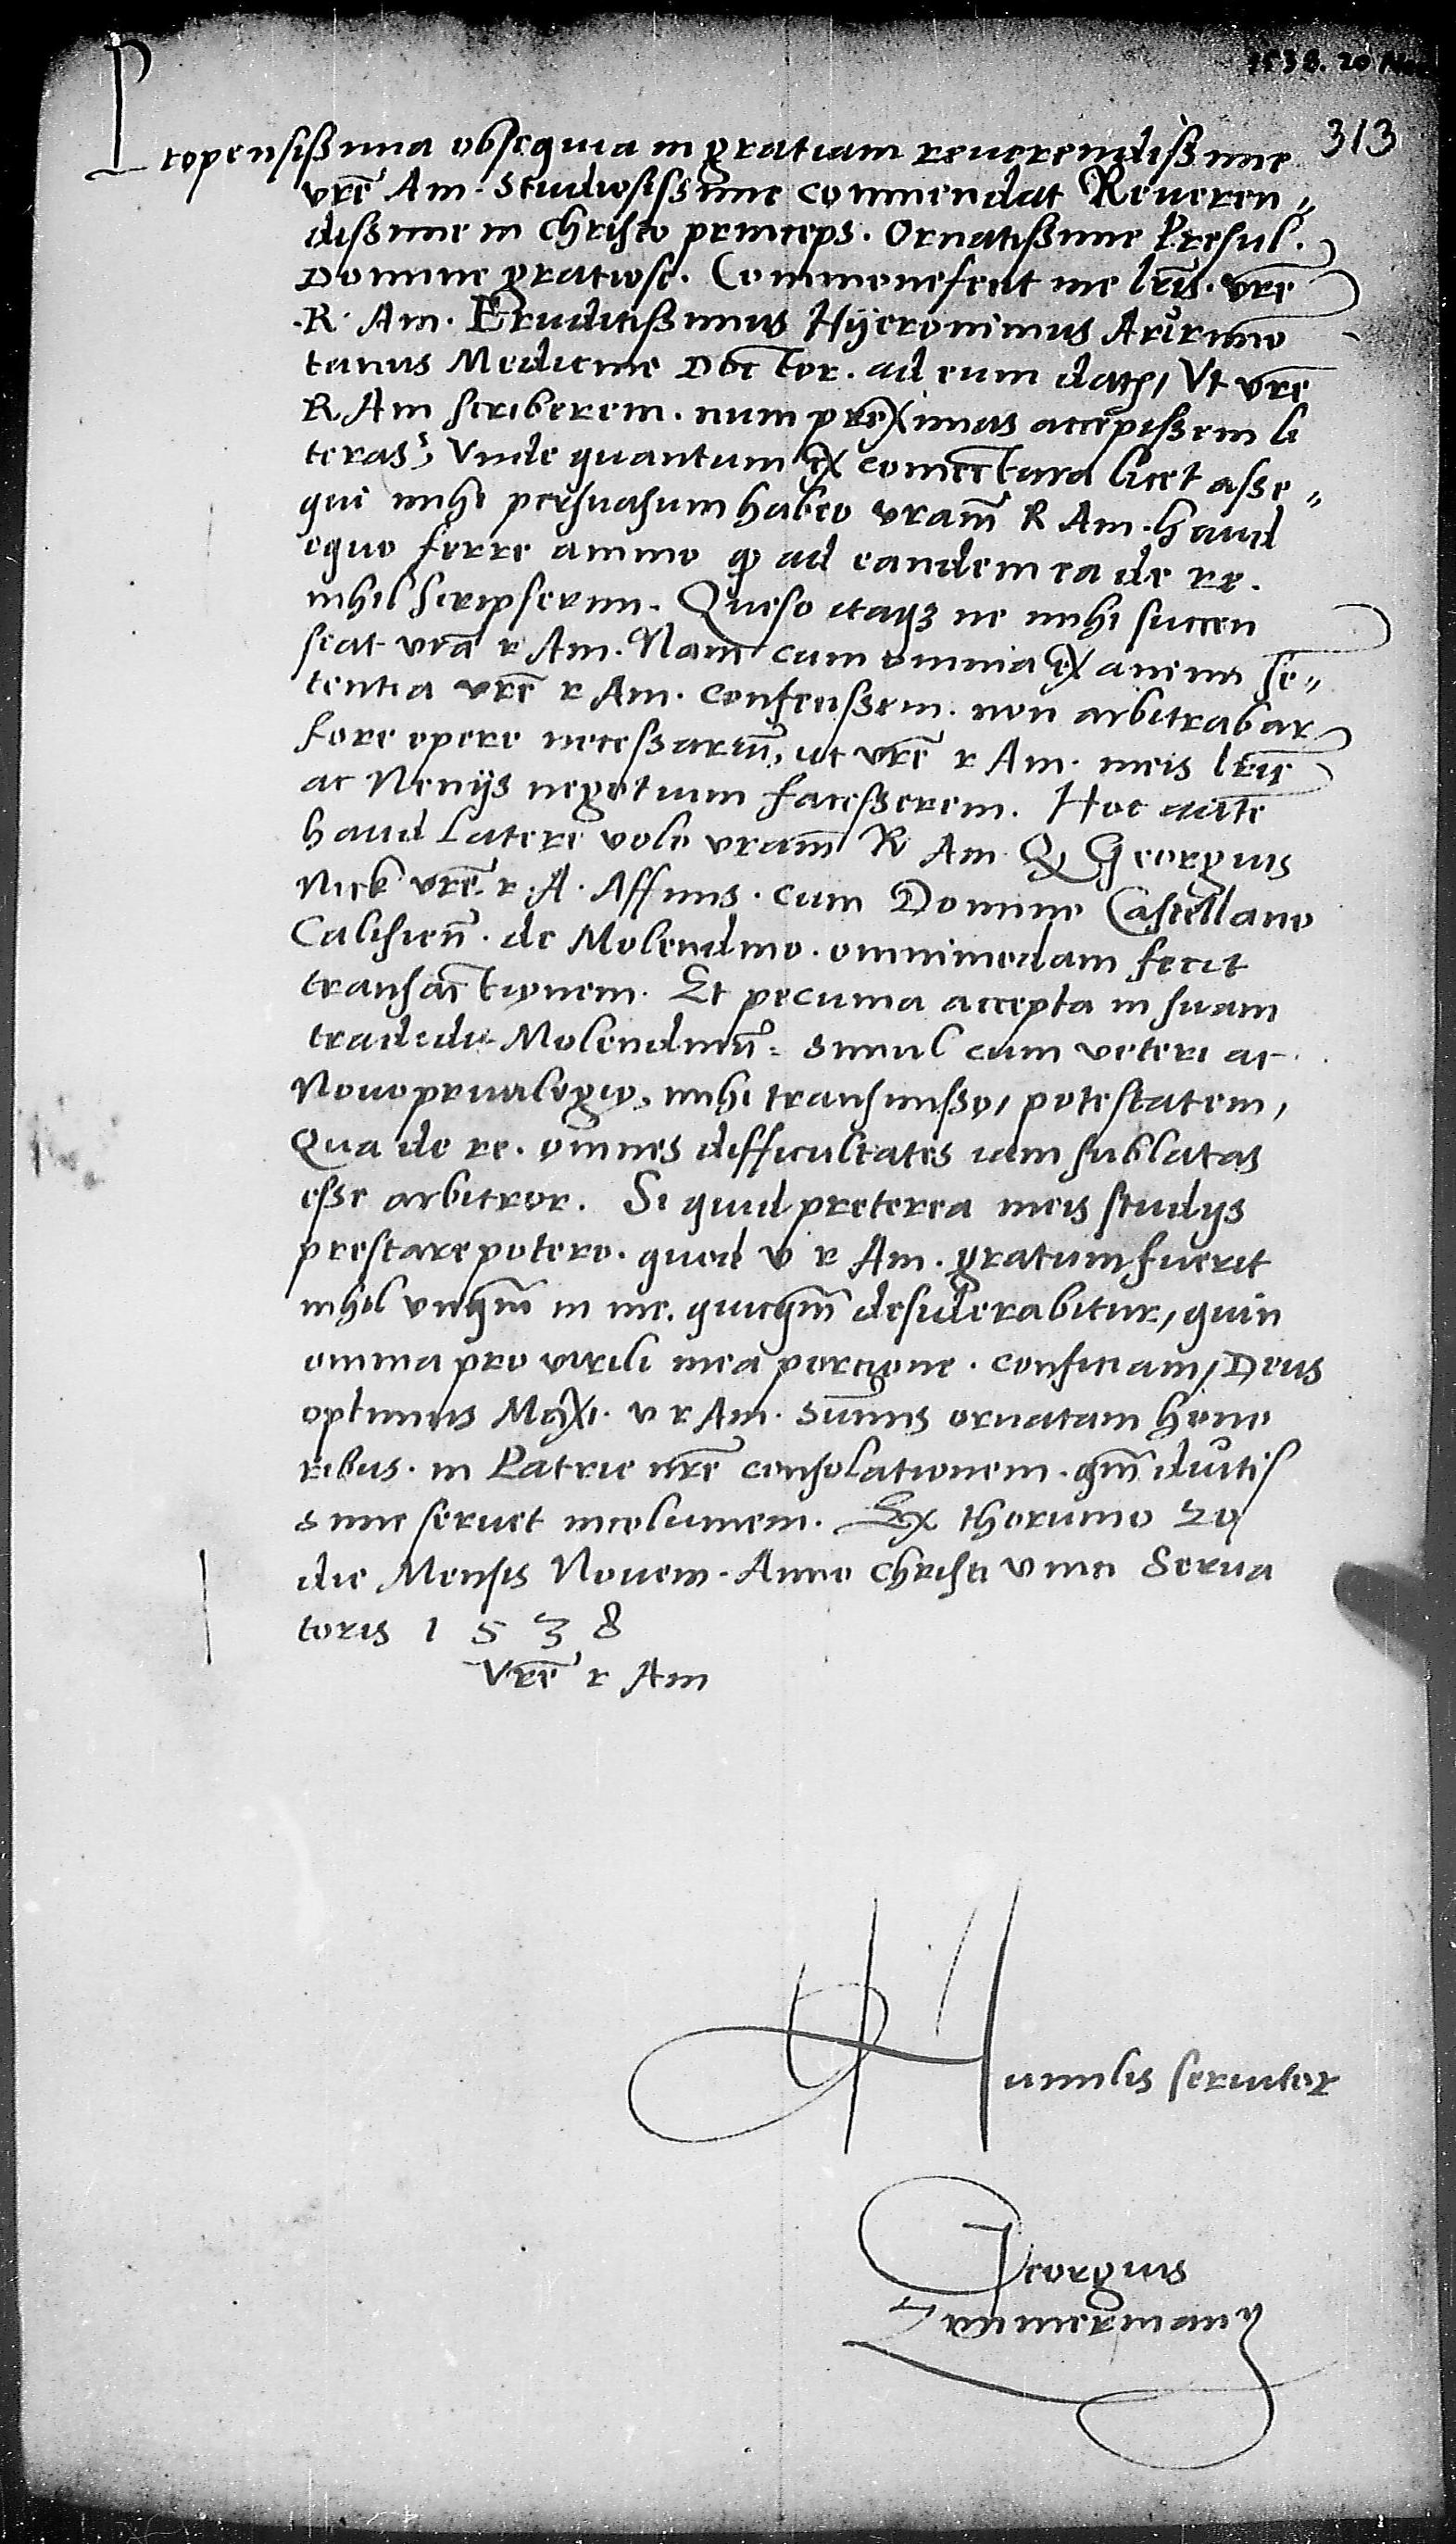 1538. 20
313
Propensißima obsequia in gratiam reuerendißime
vrẽ Am. Studiosissime commendat Reueren„
dissime in Christo princeps. Ornatißime Presul.
Domine gratiose. Commonefecit me lrĩs. vrẽ
R. Am. Eruditißimus Hÿeronimus
tanus Medicine Doctor. ad eum datis, Vt vrẽ
R Am scriberem. num proximas accepissem li
teras, Vnde quantum ex coniectura licet asse„
qui mihi persuasum habeo vram̃ R Am. haud
equo ferre animo q ad eandem ea de re.
nihil scripserim. Queso itaqȝ ne mihi succen
seat vrã r Am. Nam cum omnia ex animi se„
tentia vrẽ r Am. confecissem. non arbitrabar
fore opere necessariũ, ut vrẽ r Am. meis lrĩs
ac Nenijs negotium facesserem. Hoc autẽ
haud latere volo vram̃ R Am. Q Georgius
Nick vrẽ r. A. Affinis. cum Domino Castellano
Calisieñ. de Molendino. omnimodam fecit
transactionem. Et pecunia accepta in suam
tradidit Molendinũ. simul cum veteri ac
Nouo priuilegio, mihi transmisso, potestatem,
Qua de re. omnes difficultates iam sublatas
esse arbitror. Si quid preterea meis studijs
prestare potero. quod v r Am. gratum fuerit
nihil vnqm̃ in me. quicqm̃ desiderabitur, quin
omnia pro virili mea porcione. conficiam, Deus
optimus Maxi. v r Am. sum̃is ornatam hono
ribus. in Patrie nrẽ consolationem. qm̃ diutis
sime seruet incolumem. Ex thorunio 20
die Mensis Nouem. Anno Christi vnici Serua
toris 1 5 3 8
Vrẽ r Am
Humilis seruitor
Georgius
Zimmermann